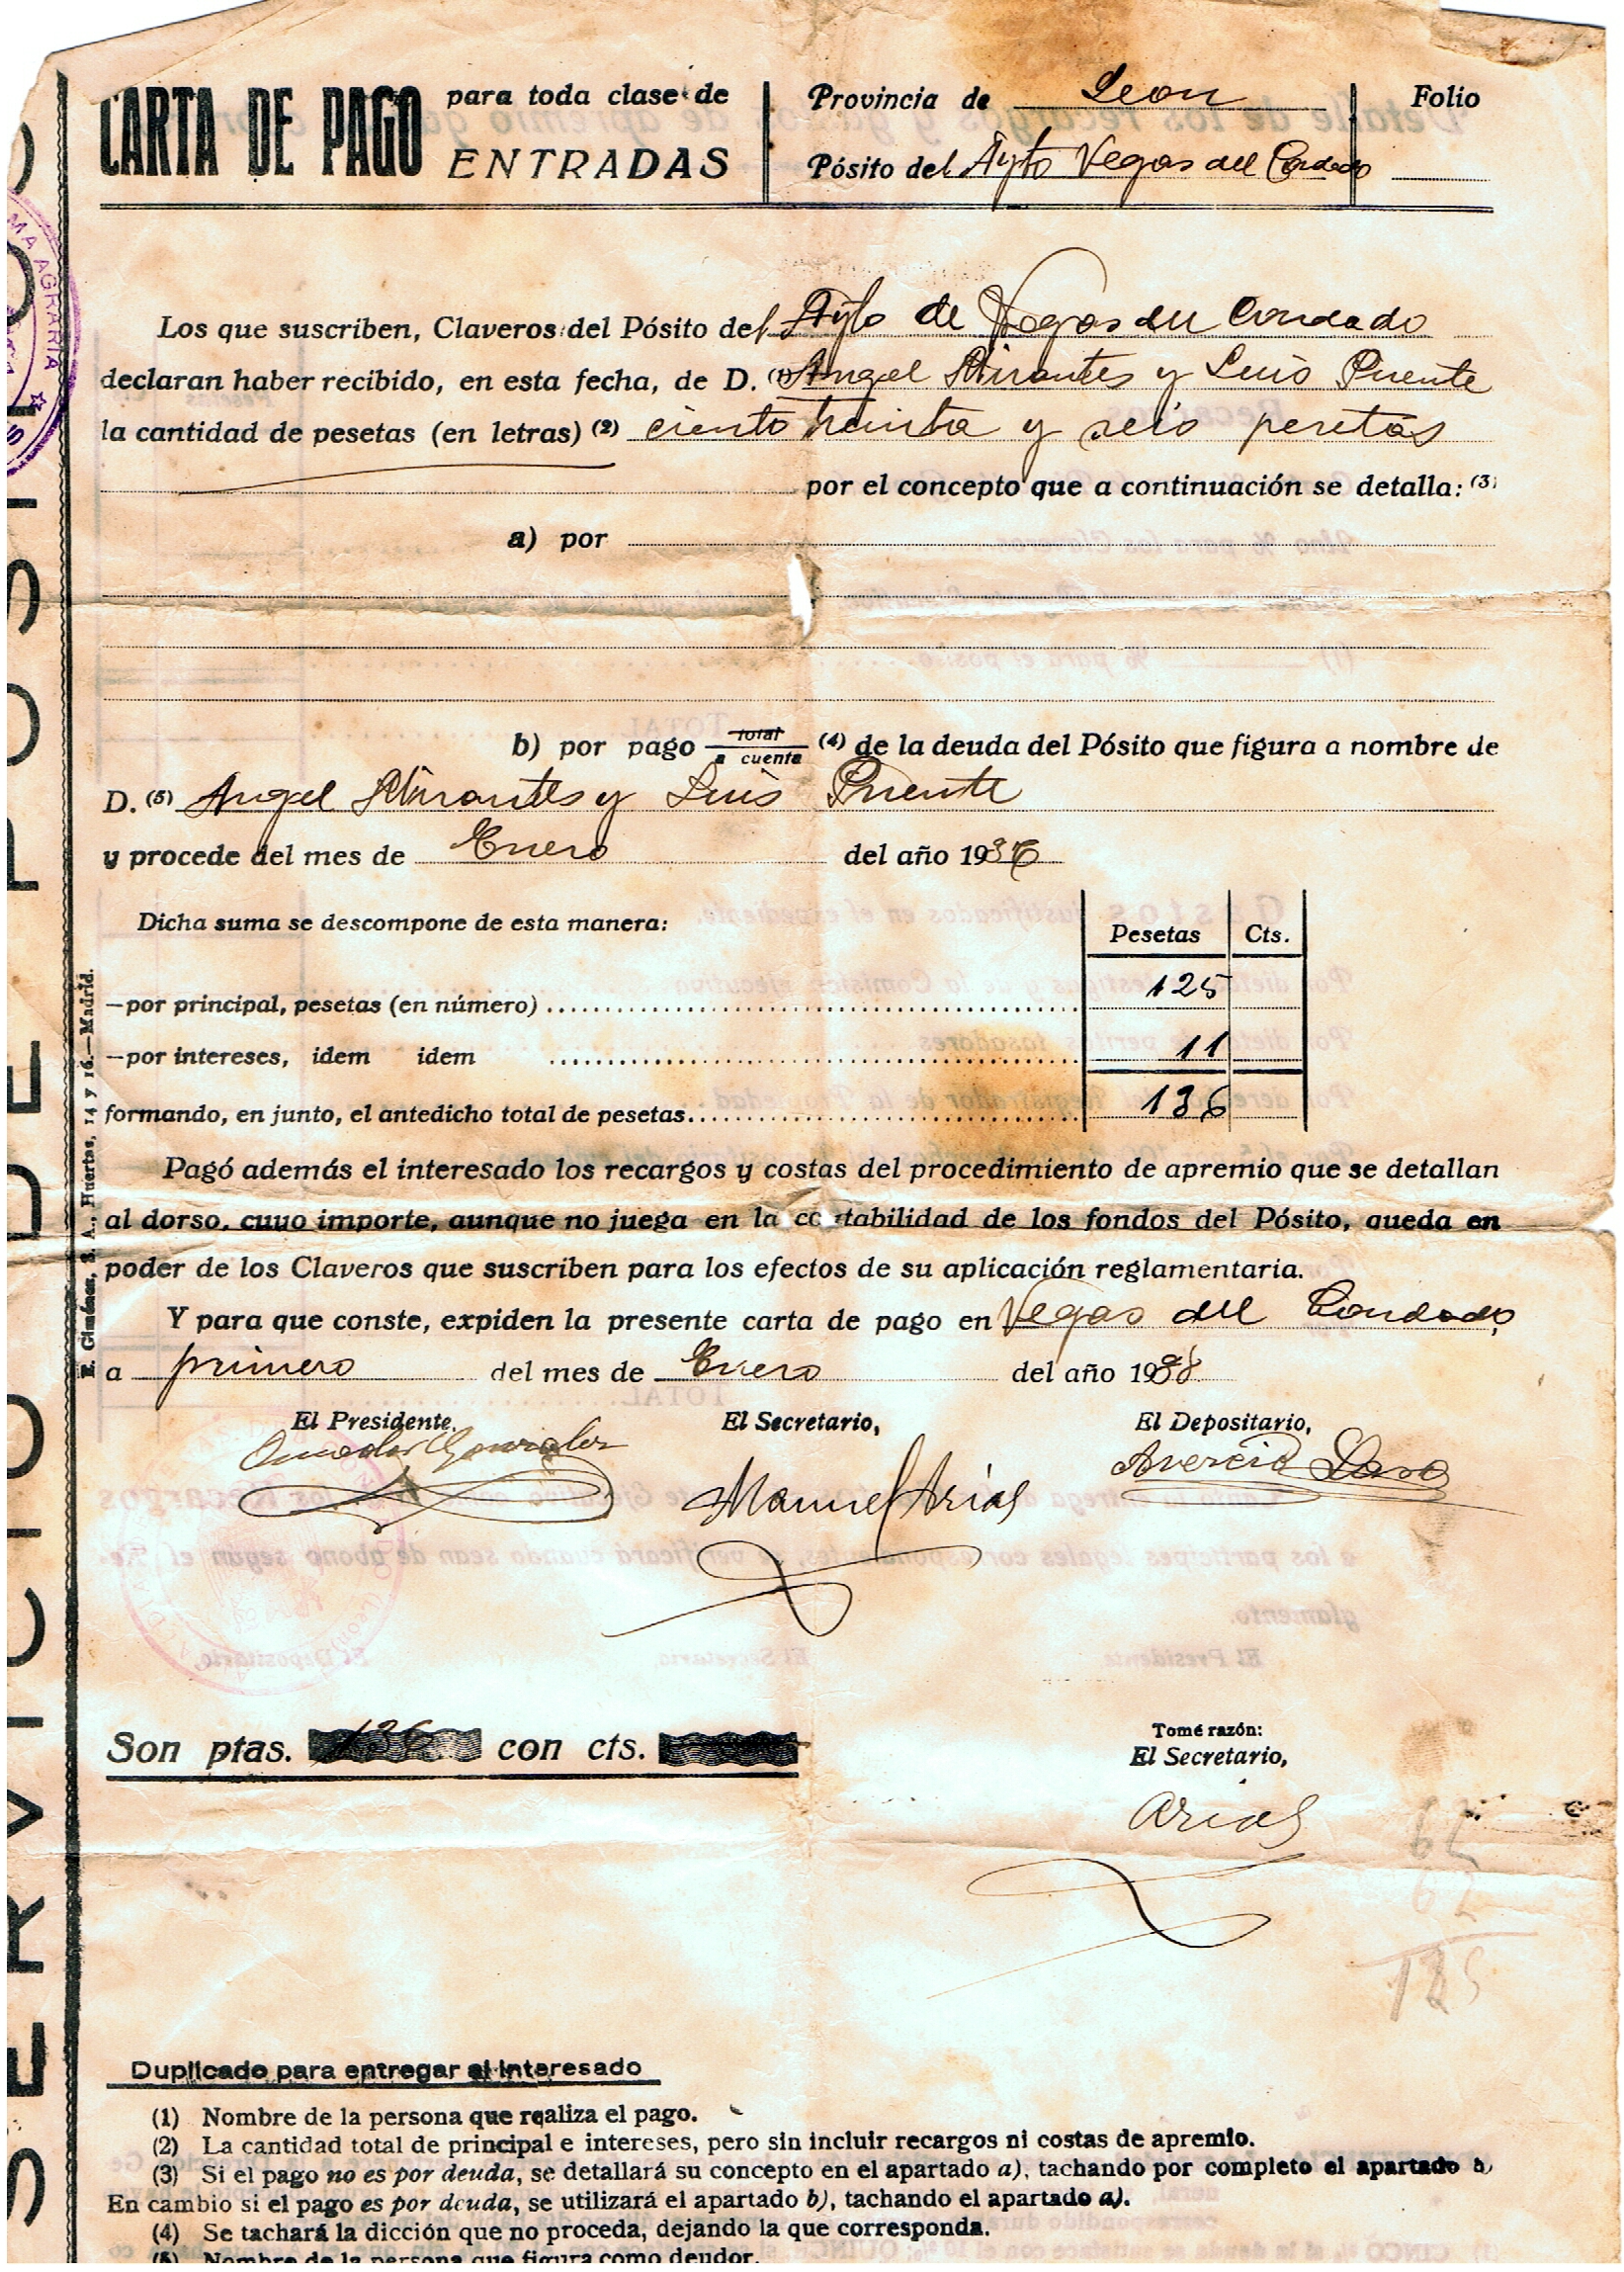 CARTA DE PAGO para toda clase de ENTRADAS
Provincia de Leon
Folio
Pósito del Ayto Vegas del Condado
Los que suscriben, Claveros del Pósito del Ayto de Vegas del Condado
declaran haber recibido, en esta fecha, de D. (1) Angel Mirantes y Luis Puente
la cantidad de pesetas (en letras) (2) ciento treinta y seis pesetas
por el concepto que a continuación se detalla: (3)
a) por
b) por pago total a cuenta (4) de la deuda del Pósito que figura a nombre de
D. (5) Angel Mirantes y Luis Puente
y procede del mes de Enero del año 193
Dicha suma se descompone de esta manera:
Pesetas Cts.
—por principal, pesetas (en número) 125
—por intereses, idem idem 11
formando, en junto, el antedicho total de pesetas 136
Pagó además el interesado los recargos y costas del procedimiento de apremio que se detallan
al dorso, cuyo importe, aunque no juega en la co tabilidad de los fondos del Pósito, queda en
poder de los Claveros que suscriben para los efectos de su aplicación reglamentaria.
Y para que conste, expiden la presente carta de pago en Vegas del Condado
a primero del mes de Enero del año 1938
El Presidente, El Secretario, El Depositario,
Amador Gonzalez
Manuel Arias
Son ptas. 136 con cts.
Tomé razón:
El Secretario,
Arias
62
62
125
Duplicado para entregar al interesado
(1) Nombre de la persona que realiza el pago.
(2) La cantidad total de principal e intereses, pero sin incluir recargos ni costas de apremio.
(3) Si el pago no es por deuda, se detallará su concepto en el apartado a), tachando por completo el apartado b)
En cambio si el pago es por deuda, se utilizará el apartado b), tachando el apartado a).
(4) Se tachará la dicción que no proceda, dejando la que corresponda.
(5) Nombre de la persona que figura como deudor.
SERVICIO DE POSITO
E. Giménez, S. A., Huertas, 14 y 16.—Madrid.
MA AGRARIA